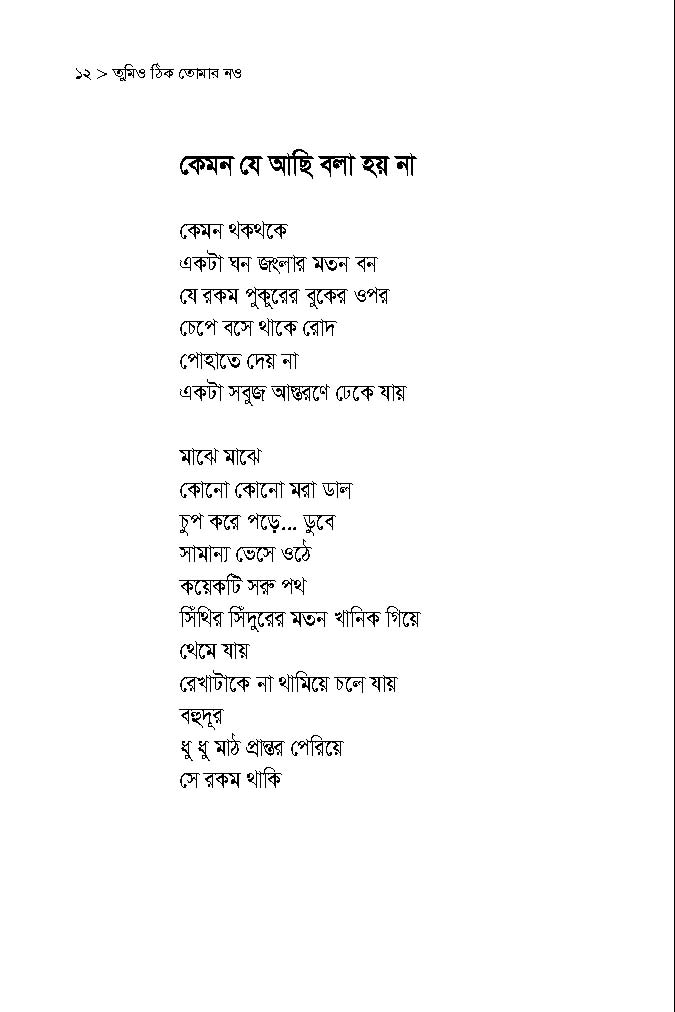 ১২ > তুমিও ঠিক তোমার নও
কেমন যে আছি বলা হয় না
কেমন থকথকে
একটা ঘন জংলার মতন বন
যে রকম পুকুরের বুকের ওপর
চেপে বসে থাকে রোদ
পোহাতে দেয় না
একটা সবুজ আস্তরণে ঢেকে যায়
মাঝে মাঝে
কোনো কোনো মরা ডাল
চুপ করে পড়ে... ডুবে
সামান্য ভেসে ওঠে
কয়েকটি সরু পথ
সিঁথির সিঁদুরের মতন খানিক গিয়ে
থেমে যায়
রেখাটাকে না থামিয়ে চলে যায়
বহুদূর
ধু ধু মাঠ প্রান্তর পেরিয়ে
সে রকম থাকি